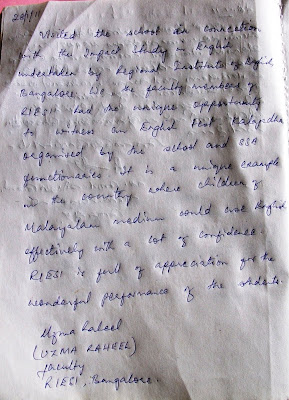 20/1/11
Visited the school in connection
with the Impact Study in English
undertaken by Regional Institute of English
Bangalore. We the faculty members of
RIESI had the unique opportunity
to witness an English Fest
organised by the school and SSA
functionaries. It is a unique example
in the country where children of
Malayalam medium could use English
effectively with a lot of confidence.
RIESI is full of appreciation for the
wonderful performance of the students.
Uzma Raheel
(UZMA RAHEEL)
faculty
RIESI, Bangalore.